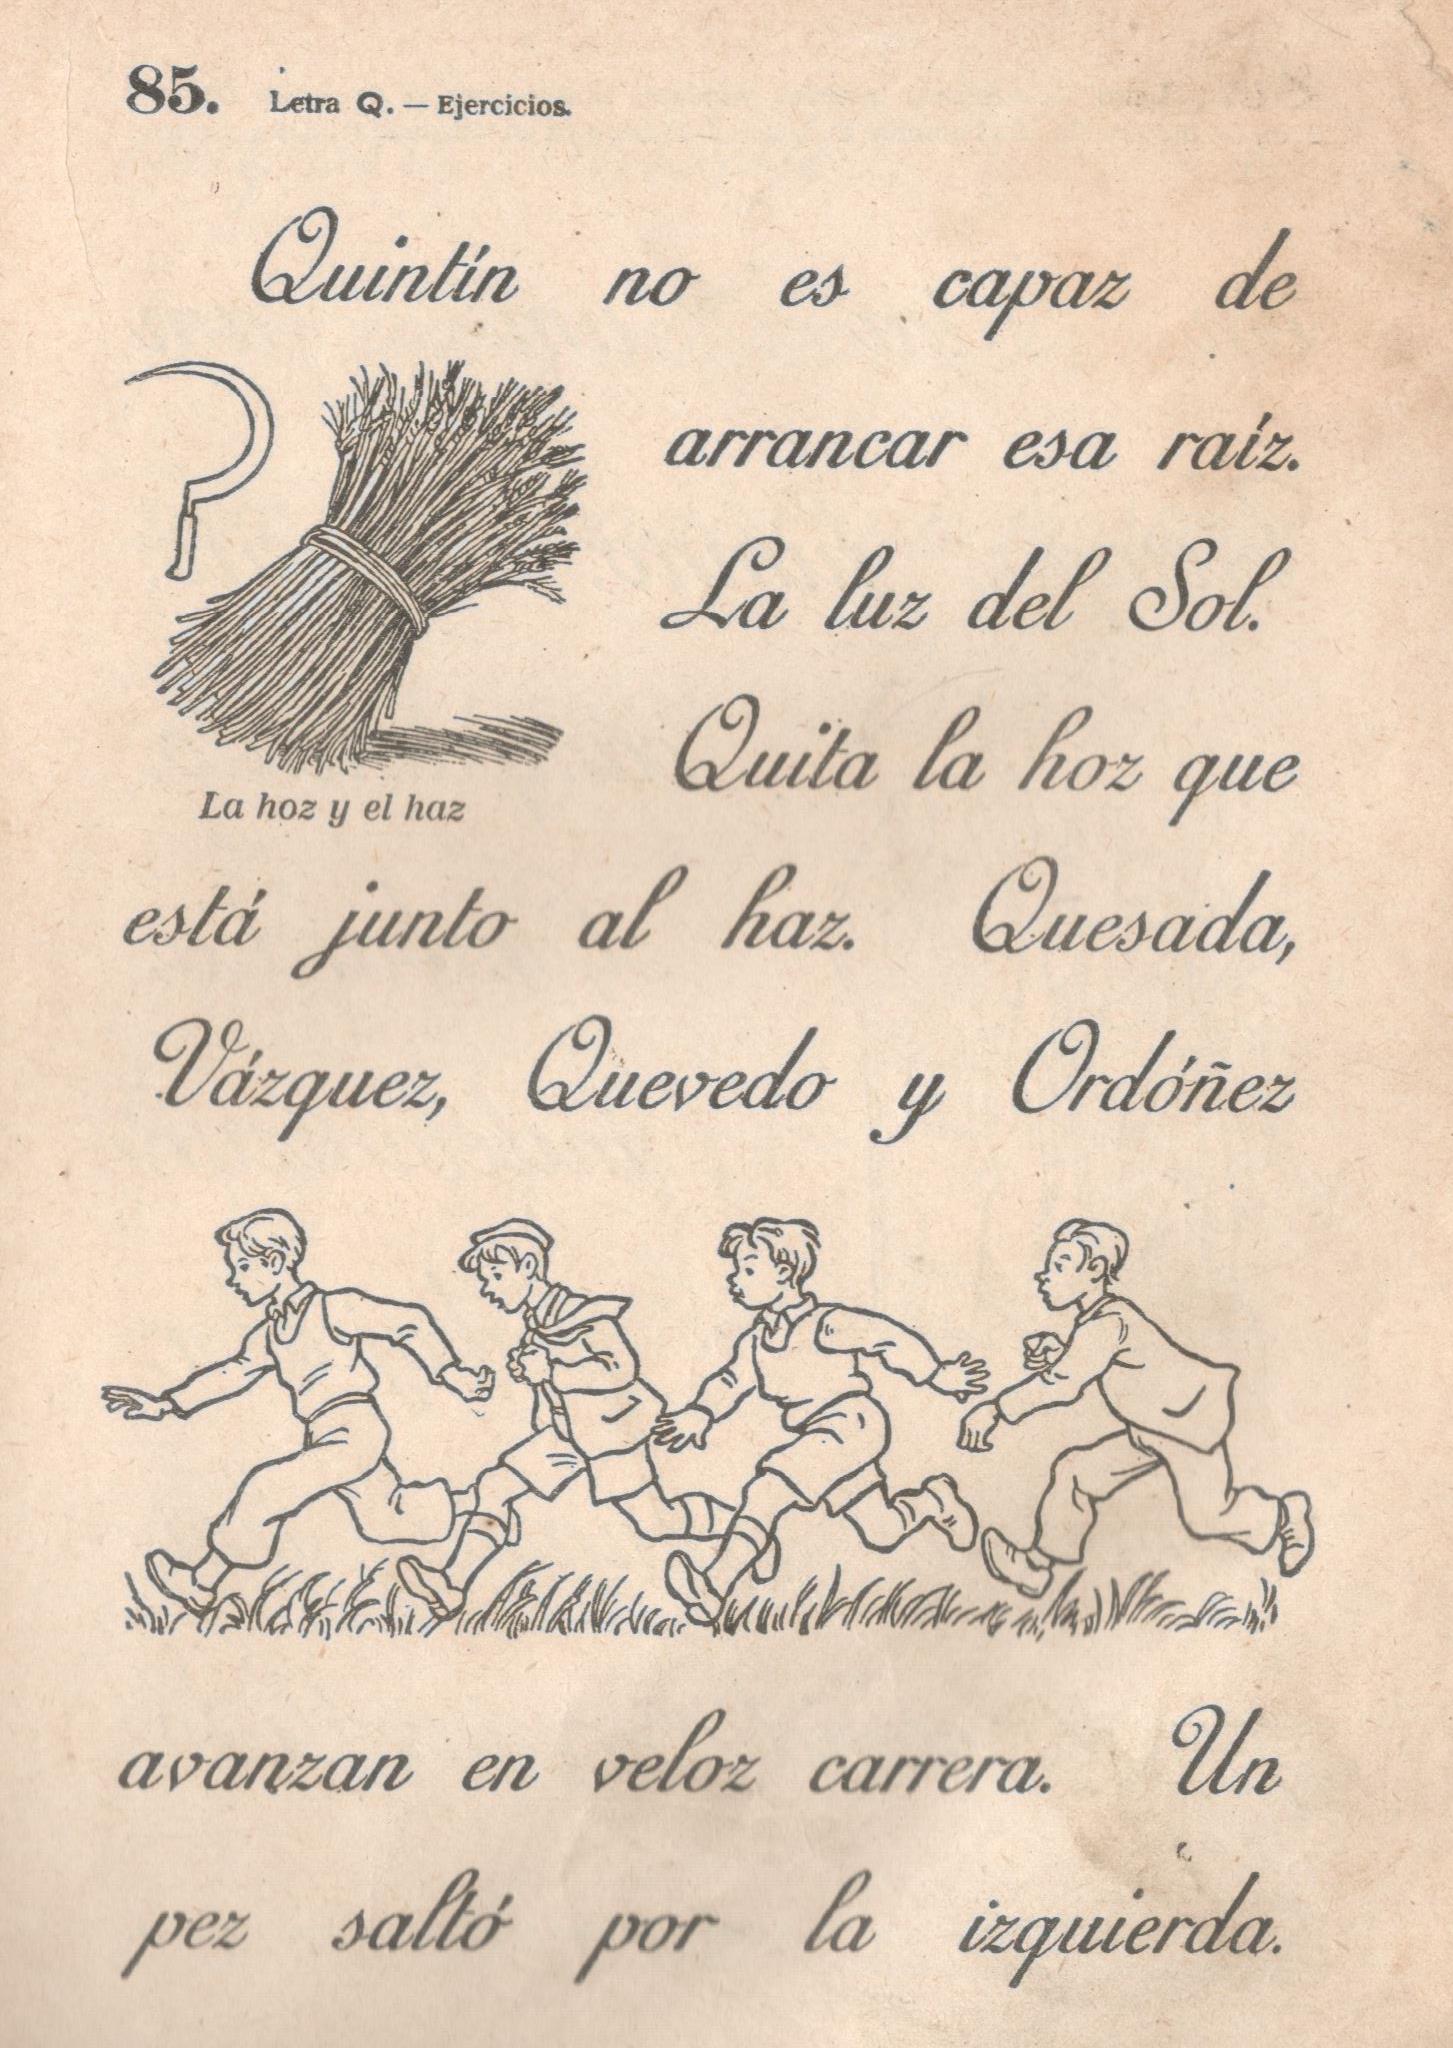 85. Letra Q. — Ejercicios.
Quintín no es capaz de
arrancar esa raíz.
La luz del Sol.
Quita la hoz que
La hoz y el haz
está junto al haz. Quesada,
Vázquez, Quevedo y Ordóñez
avanzan en veloz carrera. Un
pez saltó por la izquierda.